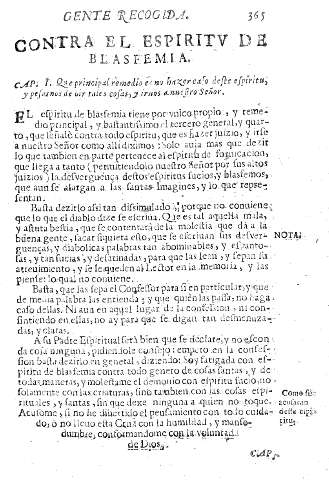 GENTE RECOGIDA. 365
CONTRA EL ESPIRITV DE
BLASFEMIA.
CAP. I. Que principal remedio es no hazer caso deste espiritu,
y pesarnos de oir tales cosas, y irnos a nuestro Señor.
EL espiritu de blasfemia tiene por vnico propio, y reme-
dio principal, y bastantissimo el tercero general, y quar-
to, que señalè contra todo espiritu, que es hazer juizio, y irse
a nuestro Señor como alli diximos: Solo aura mas que dezir
lo que tambien en parte pertenece al espiritu de fornicacion,
que llega a tanto (permitiendolo nuestro Señor por sus altos
juizios) la desverguença destos espiritus sucios, y blasfemos,
que aun se alargan a las santas Imagines, y lo que repre-
sentan.
Basta dezirlo assi tan dissimulado; porque no conviene,
que lo que el diablo dize se escriva. Que es tal aquella mala,
y astuta bestia, que se contentarà de la molestia que dà a la
buena gente, sacar siquiera esto, que se escrivan sus desver-
guenças, y diabolicas palabras tan abominables, y espanto-
sas, y tan sucias, y desatinadas, para que las lean, y sepan su
atrevimiento, y se le queden al Lector en la memoria, y las
piense: lo qual no conviene.
NOTA.
Basta, que las sepa el Confessor para sì en particular, y que
de media palabra las entienda; y que quien las passa, no haga
caso dellas. Ni aun en aquel lugar de la confession, ni con-
sintiendo en ellas, no ay para que se digan tan desmenuza-
das, y claras.
A su Padre Espiritual serà bien que se declare, y no escon-
da cosa ninguna, pidiendole consejo: empero en la confes-
sion basta dezirlo en general, diziendo: Soy fatigada con es-
piritu de blasfemia contra todo genero de cosas santas, y de
todas maneras, y molestame el demonio con espiritu sucio, no
solamente con las criaturas, sino tambien con las cosas espi-
rituales, y santas, sin que dexe ninguna a quien no toque.
Acusome, si no he divertido el pensamiento con todo cuida-
do, ò no llevo esta Cruz con la humildad, y manse-
dumbre, conformandome con la voluntad
de Dios.
Como se
deste espi-
ritu.
CAP.